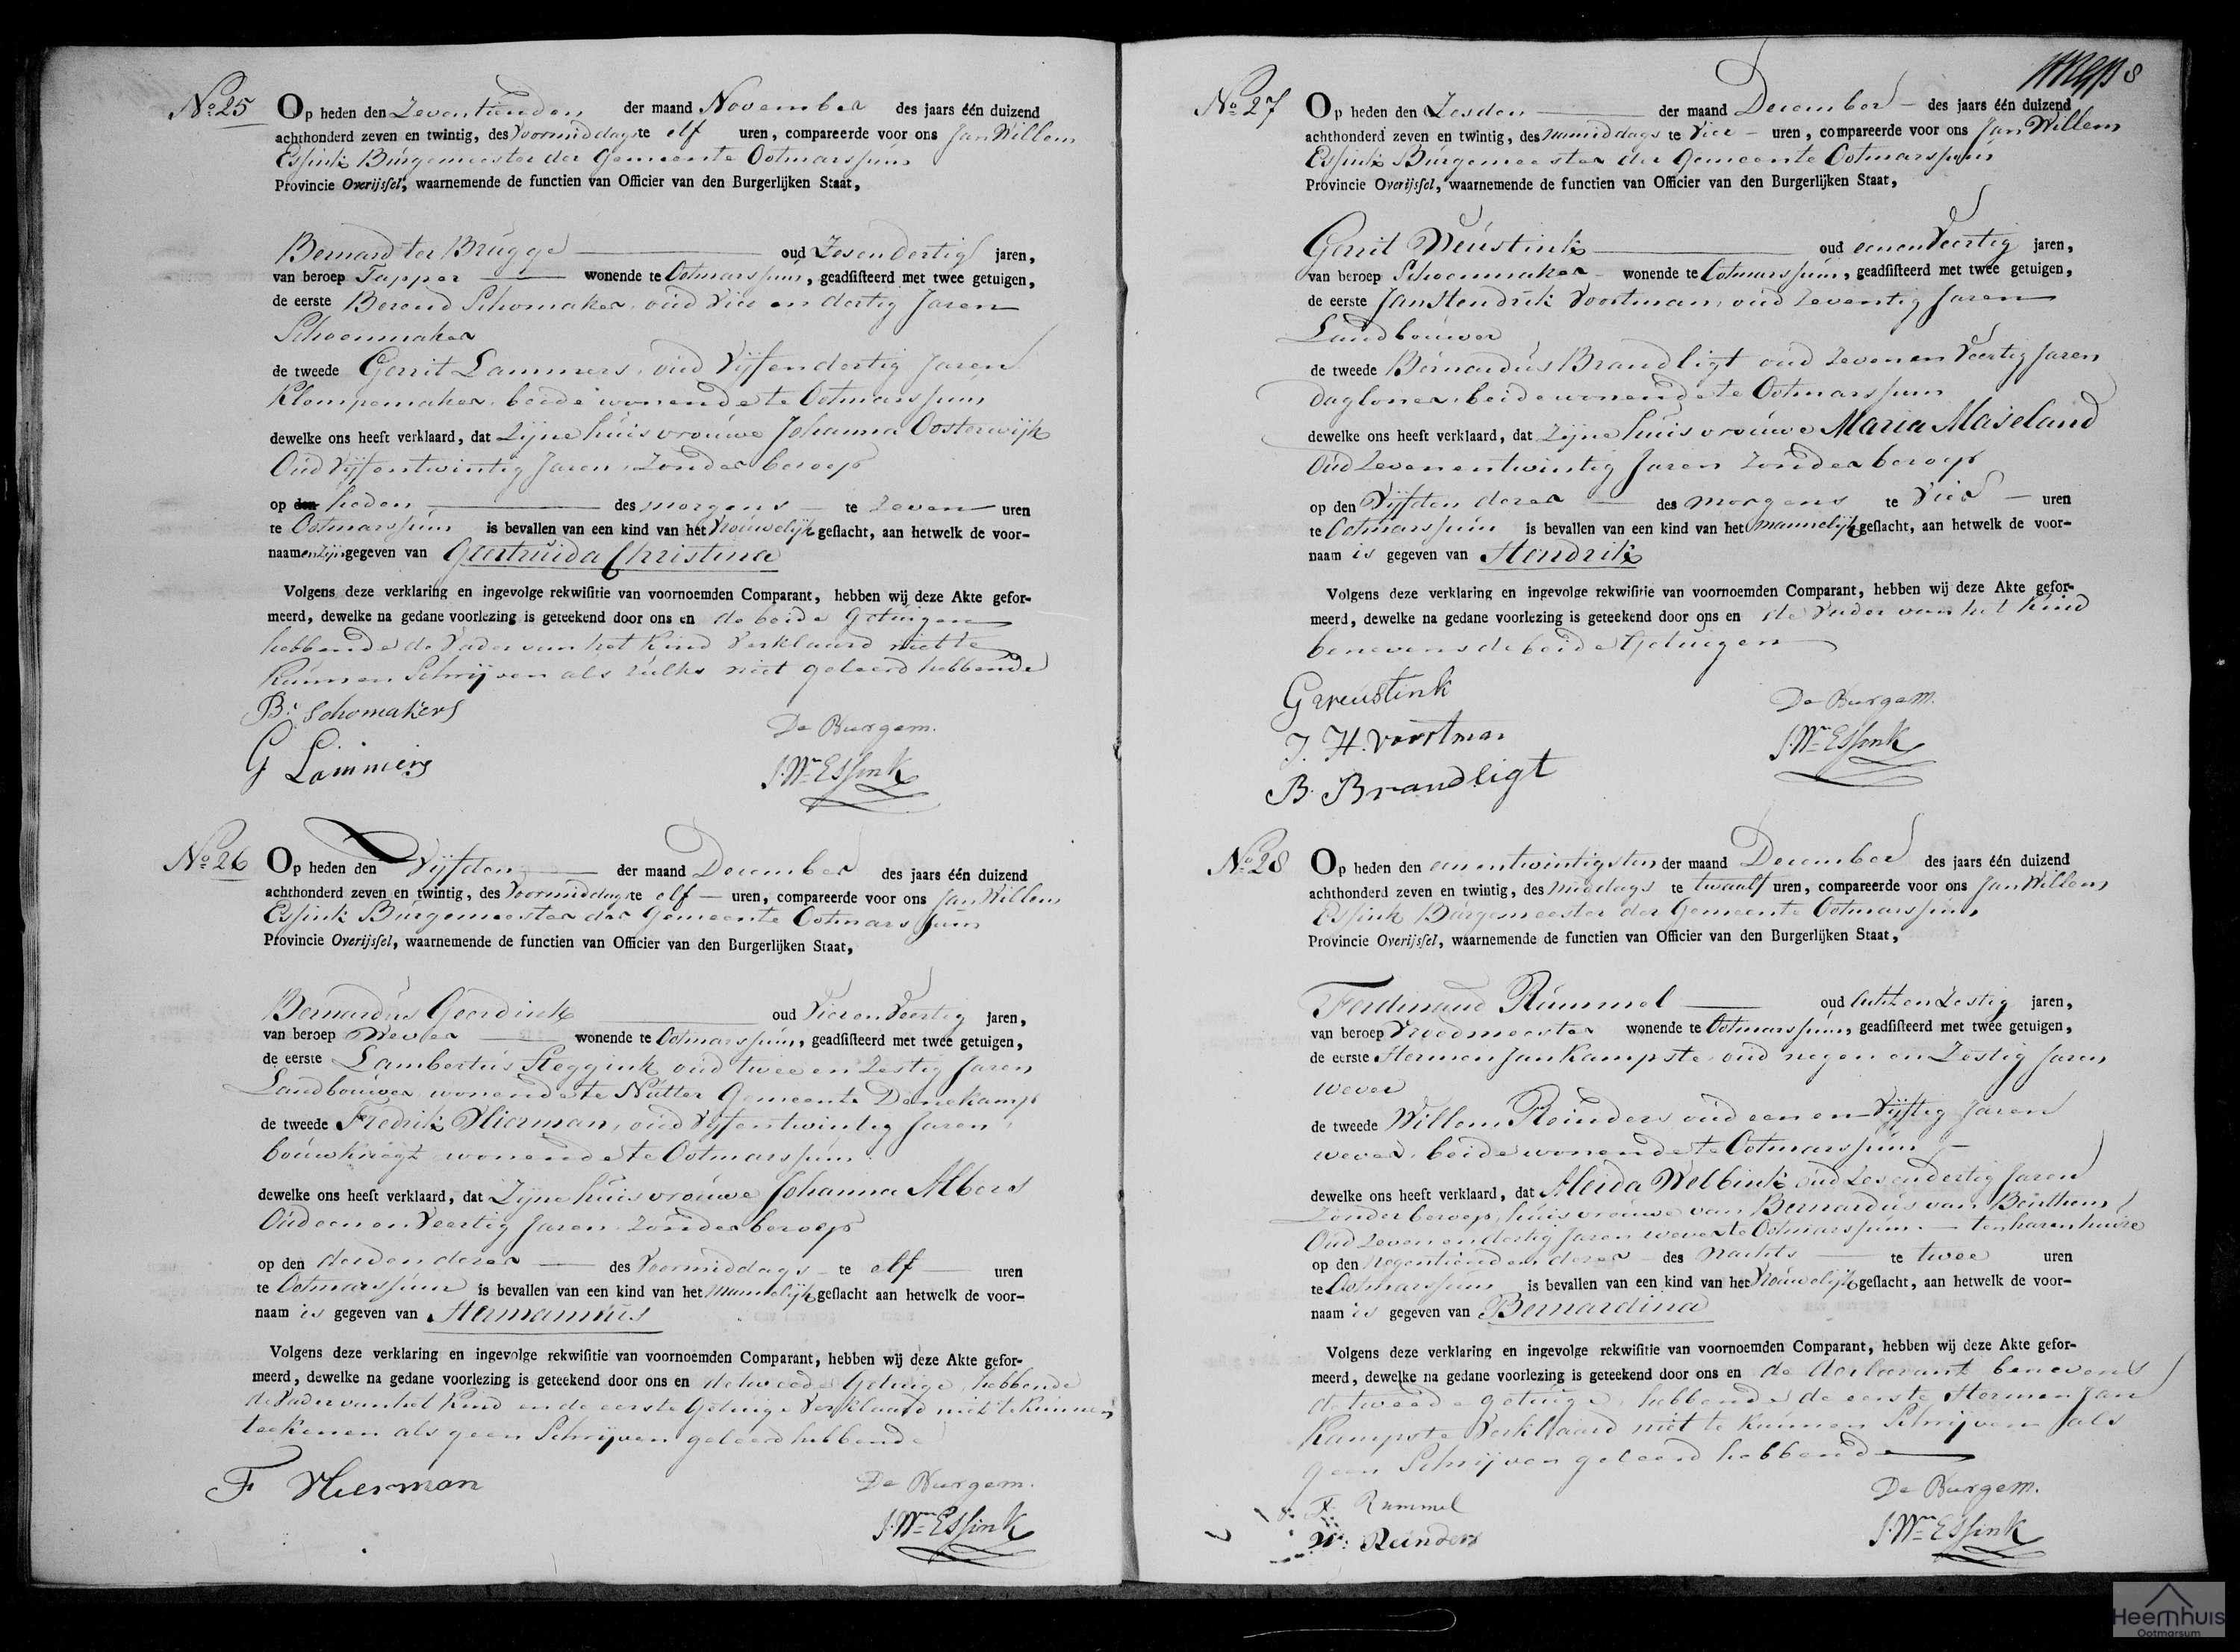 No 25
Op heden den Zeventienden der maand November des jaars één duizend
achthonderd zeven en twintig, des Voormiddags te elf uren, compareerde voor ons Jan Willem
Essink Burgemeester der Gemeente Ootmarssum
Provincie Overijssel, waarnemende de functien van Officier van den Burgerlijken Staat,
Bernard ter Brugge oud Zesendertig jaren,
van beroep Tapper wonende te Ootmarssum, geadsisteerd met twee getuigen,
de eerste Berend Schomaker, oud Vier en dertig Jaren
Schoenmaker
de tweede Gerrit Lammers, oud Vijfendertig Jaren
Klompemaker, beide wonende te Ootmarssum
dewelke ons heeft verklaard, dat Zijne huisvrouwe Johanna Oosterwijk
Oud Vijfentwintig Jaren, Zonder beroep
op den heden des morgens te Zeven uren
te Ootmarssum is bevallen van een kind van het Vrouwelijk geslacht, aan hetwelk de voor-
naamen zijn gegeven van Geertruida Christina
Volgens deze verklaring en ingevolge rekwisitie van voornoemden Comparant, hebben wij deze Akte gefor-
meerd, dewelke na gedane voorlezing is geteekend door ons en de beide Getuigen
hebbende de Vader van het Kind Verklaard niet te
Kunnen Schrijven als zulks niet geleerd hebbende
Br Schomakers
G Lammers
De Burgem.
J. Wm Essink
No 26
Op heden den Vijfden der maand December des jaars één duizend
achthonderd zeven en twintig, des Voormiddags te elf uren, compareerde voor ons Jan Willem
Essink Burgemeester der Gemeente Ootmarssum
Provincie Overijssel, waarnemende de functien van Officier van den Burgerlijken Staat,
Bernardus Geerdink oud Vier en Veertig jaren,
van beroep Wever wonende te Ootmarssum, geadsisteerd met twee getuigen,
de eerste Lambertus Steggink oud twee en Zestig Jaren
Landbouwer wonende te Nutter Gemeente Denekamp
de tweede Fredrik Hierman, oud Vijfentwintig Jaren,
bouwknegt wonende te Ootmarssum
dewelke ons heeft verklaard, dat Zijne huisvrouwe Johanna Albers
Oud een en Veertig Jaren, Zonder beroep
op den derden dezer des Voormiddags te elf uren
te Ootmarssum is bevallen van een kind van het Mannelijk geslacht aan hetwelk de voor-
naam is gegeven van Hermannus
Volgens deze verklaring en ingevolge rekwisitie van voornoemden Comparant, hebben wij deze Akte gefor-
meerd, dewelke na gedane voorlezing is geteekend door ons en de tweede Getuige, hebbende
de Vader van het Kind en de eerste Getuige Verklaard niet te Kunnen
teekenen als geen Schrijven geleerd hebbende
F Hierman
De Burgem.
J. Wm Essink
8
No 27
Op heden den Zesden der maand December des jaars één duizend
achthonderd zeven en twintig, des namiddags te Vier uren, compareerde voor ons Jan Willem
Essink Burgemeester der Gemeente Ootmarssum
Provincie Overijssel, waarnemende de functien van Officier van den Burgerlijken Staat,
Gerrit Weustink oud eenen Veertig jaren,
van beroep Schoenmaker wonende te Ootmarssum, geadsisteerd met twee getuigen,
de eerste Jan Hendrik Voortman, oud Zeventig Jaren
Landbouwer
de tweede Bernardus Brandligt oud Zeven en Veertig Jaren
Dagloner, beide wonende te Ootmarssum
dewelke ons heeft verklaard, dat Zijne huisvrouwe Maria Maseland
Oud Zevenentwintig Jaren Zonder beroep
op den Vijfden dezer des morgens te Vier uren
te Ootmarssum is bevallen van een kind van het mannelijk geslacht, aan hetwelk de voor-
naam is gegeven van Hendrik
Volgens deze verklaring en ingevolge rekwisitie van voornoemden Comparant, hebben wij deze Akte gefor-
meerd, dewelke na gedane voorlezing is geteekend door ons en de Vader van het Kind
benevens de beide Getuigen
G Weustink
J. H. Voortman
B. Brandligt
De Burgem.
J. Wm Essink
No 28
Op heden den een entwintigsten der maand December des jaars één duizend
achthonderd zeven en twintig, des middags te twaalf uren, compareerde voor ons Jan Willem
Essink Burgemeester der Gemeente Ootmarssum
Provincie Overijssel, waarnemende de functien van Officier van den Burgerlijken Staat,
Ferdinand Rummel oud Acht en Zestig jaren,
van beroep Vroedmeester wonende te Ootmarssum, geadsisteerd met twee getuigen,
de eerste Hermen Jan Kampste, oud negen en Zestig Jaren
wever
de tweede Willem Reinders oud een en Vijftig Jaren
wever, beide wonende te Ootmarssum
dewelke ons heeft verklaard, dat Aleida Welbink, oud Zesendertig Jaren
Zonder beroep, huisvrouwe van Bernardus van Benthem
Oud Zeven en dertig Jaren wever te Ootmarssum ten haren huize
op den Negentienden dezer des Nachts te twee uren
te Ootmarssum is bevallen van een kind van het Vrouwelijk geslacht, aan hetwelk de voor-
naam is gegeven van Bernardina
Volgens deze verklaring en ingevolge rekwisitie van voornoemden Comparant, hebben wij deze Akte gefor-
meerd, dewelke na gedane voorlezing is geteekend door ons en de declarant benevens
de tweede getuige, hebbende de eerste Hermen Jan
Kampste Verklaard niet te Kunnen Schrijven als
geen Schrijven geleerd hebbende
F. Rummel
W: Reinders
De Burgem.
J. Wm Essink
Heemhuis
Ootmarsum